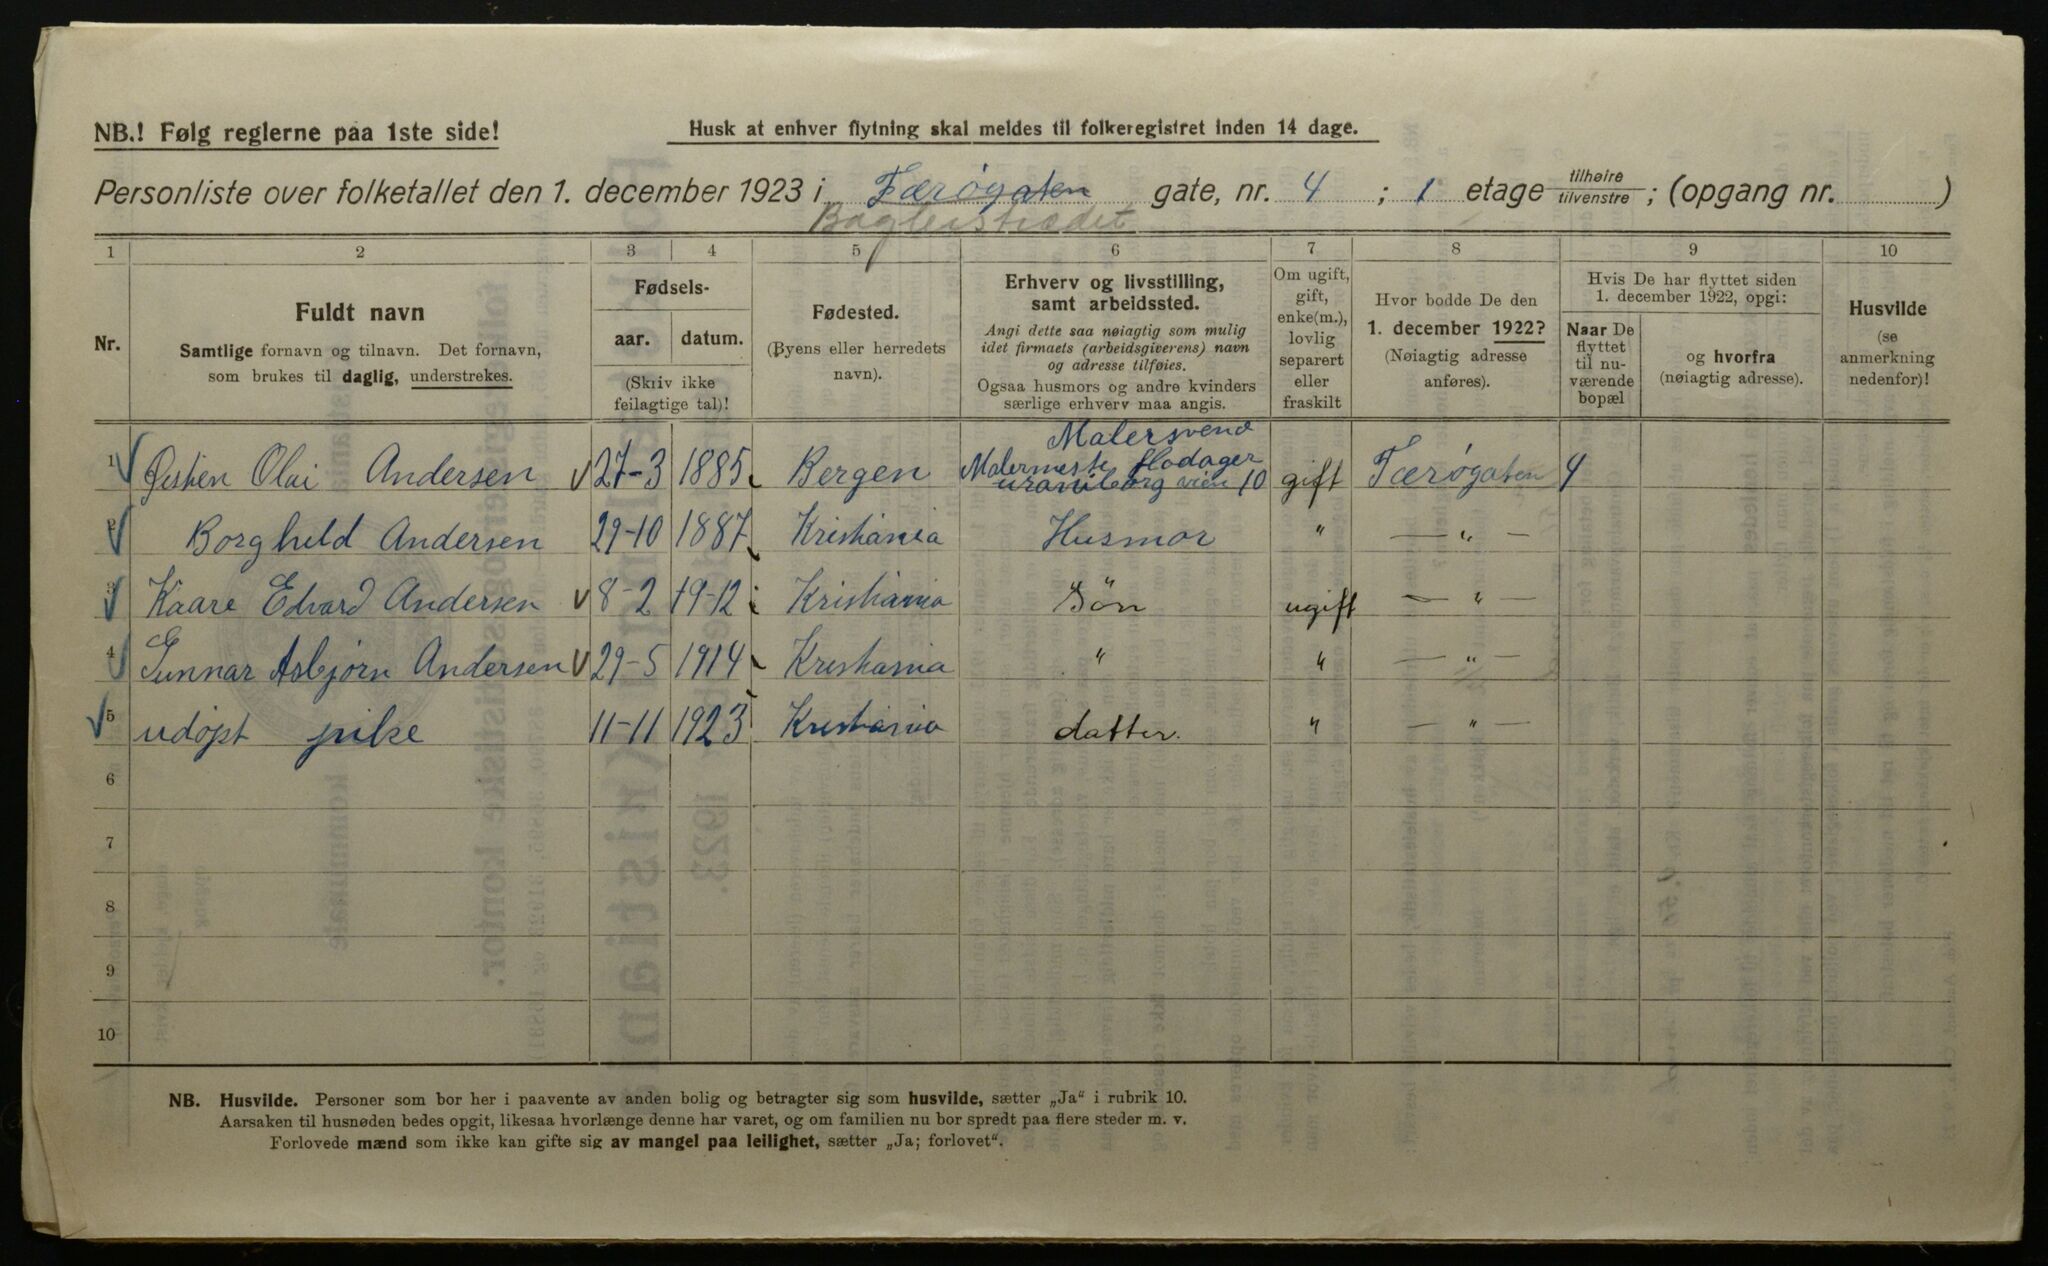 NB.! Følg reglerne paa 1ste side!
Husk at enhver flytning skal meldes til folkeregistret inden 14 dage.
Personliste over folketallet den 1. december 1923 i Færøgaten gate, nr. 4 ; 1 etage tilhøire tilvenstre ; (opgang nr. )
Baglerstrædet
1 2 3 4 5 6 7 8 9 10
Nr.
Fuldt navn
Samtlige fornavn og tilnavn. Det fornavn,
som brukes til daglig, understrekes.
Fødsels-
aar. datum.
(Skriv ikke
feilagtige tal)!
Fødested.
(Byens eller herredets
navn).
Erhverv og livsstilling,
samt arbeidssted.
Angi dette saa nøiagtig som mulig
idet firmaets (arbeidsgiverens) navn
og adresse tilføies.
Ogsaa husmors og andre kvinders
særlige erhverv maa angis.
Om ugift,
gift,
enke(m.),
lovlig
separert
eller
fraskilt
Hvor bodde De den
1. december 1922?
(Nøiagtig adresse
anføres).
Hvis De har flyttet siden
1. december 1922, opgi:
Naar De
flyttet
til nu-
værende
bopæl
og hvorfra
(nøiagtig adresse).
Husvilde
(se
anmerkning
nedenfor)!
Malersvend
1 Østen Olai Andersen 27-3 1885 Bergen Malermeste Hodager uranienborg veien 10 gift Færøgaten 4
2 Borghild Andersen 29-10 1887 Kristiania Husmor " — " —
3 Kaare Edvard Andersen 8-2 19-12 Kristiania Sön ugift — " —
4 Gunnar Asbjørn Andersen 29-5 1914 Kristiania " " — " —
5 udöpt pike 11-11 1923 Kristiania datter. " — " —
6
7
8
9
10
NB. Husvilde. Personer som bor her i paavente av anden bolig og betragter sig som husvilde, sætter „Ja" i rubrik 10.
Aarsaken til husnøden bedes opgit, likesaa hvorlænge denne har varet, og om familien nu bor spredt paa flere steder m. v.
Forlovede mænd som ikke kan gifte sig av mangel paa leilighet, sætter „Ja; forlovet".